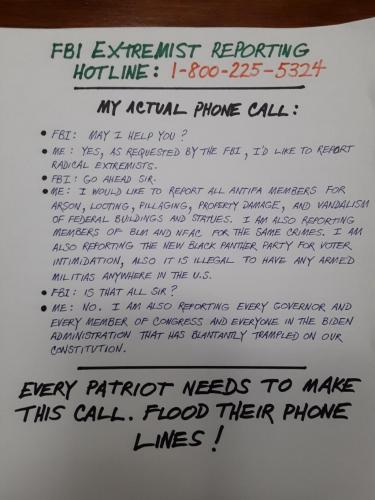 FBI EXTREMIST REPORTING
HOTLINE: 1-800-225-5324
MY ACTUAL PHONE CALL:
• FBI: MAY I HELP YOU?
• ME: YES, AS REQUESTED BY THE FBI, I'D LIKE TO REPORT
RADICAL EXTREMISTS.
• FBI: GO AHEAD SIR.
• ME: I WOULD LIKE TO REPORT ALL ANTIFA MEMBERS FOR
ARSON, LOOTING, PILLAGING, PROPERTY DAMAGE, AND VANDALISM
OF FEDERAL BUILDINGS AND STATUES. I AM ALSO REPORTING
MEMBERS OF BLM AND NFAC FOR THE SAME CRIMES. I AM
ALSO REPORTING THE NEW BLACK PANTHER PARTY FOR VOTER
INTIMIDATION, ALSO IT IS ILLEGAL TO HAVE ANY ARMED
MILITIAS ANYWHERE IN THE U.S.
• FBI: IS THAT ALL SIR?
• ME: NO. I AM ALSO REPORTING EVERY GOVERNOR AND
EVERY MEMBER OF CONGRESS AND EVERYONE IN THE BIDEN
ADMINISTRATION THAT HAS BLANTANTLY TRAMPLED ON OUR
CONSTITUTION.
EVERY PATRIOT NEEDS TO MAKE
THIS CALL. FLOOD THEIR PHONE
LINES!